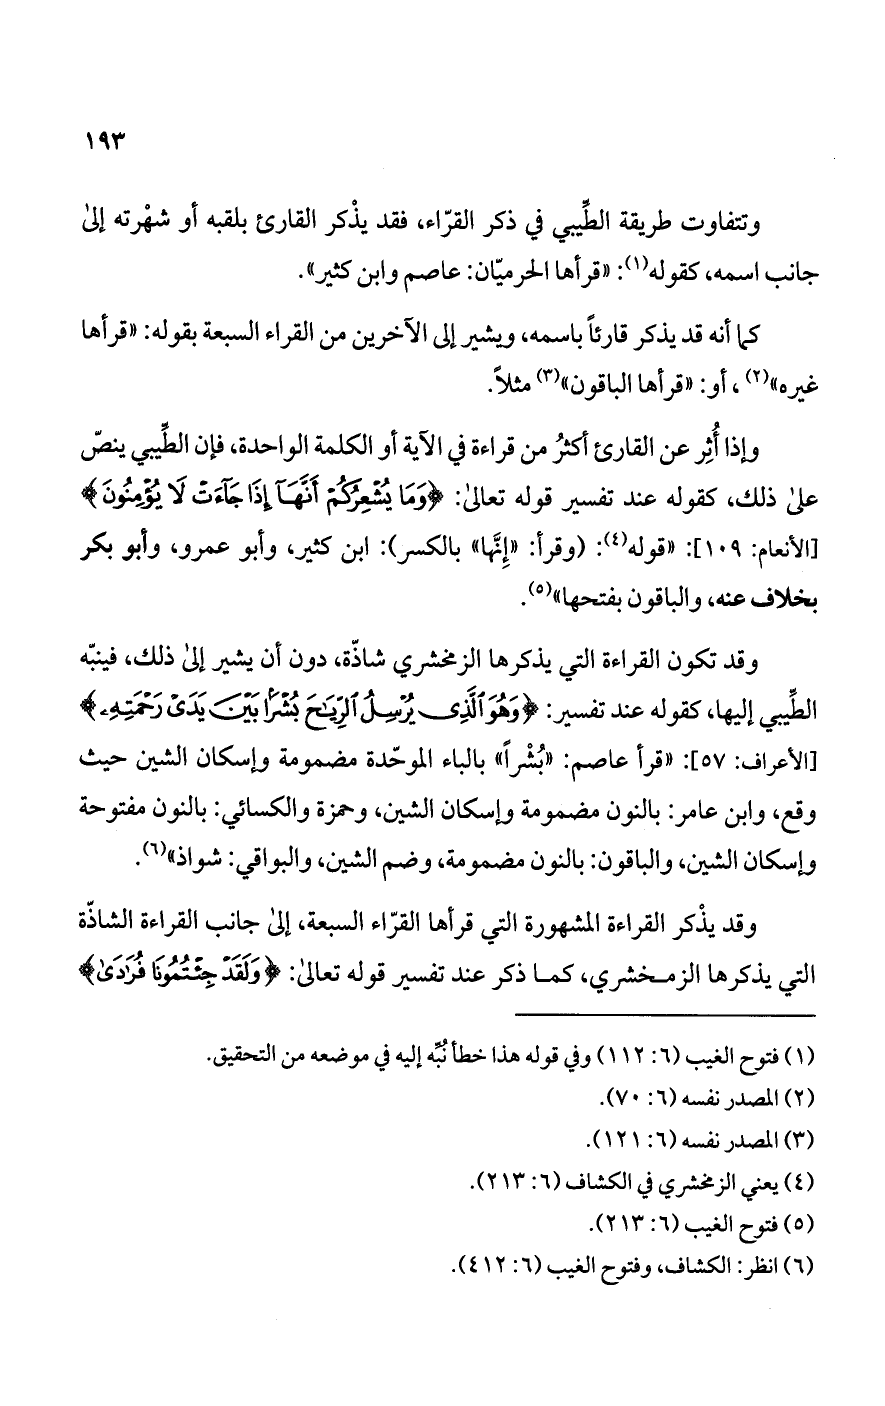 ١٩٣
وتتفاوت طريقة الطِّيبي في ذكر القرّاء، فقد يذْكر القارئ بلقبه أو شهْرته إلىٰ
جانب اسمه، كقوله(١): «قرأها الحرميّان: عاصم وابن كثير».
كما أنه قد يذكر قارئاً باسمه، ويشير إلى الآخرين من القراء السبعة بقوله: «قرأها
غيره»(٢)، أو: «قرأها الباقون»(٣) مثلاً.
وإذا أُثِر عن القارئ أكثرُ من قراءة في الآية أو الكلمة الواحدة، فإن الطِّيبي ينصّ
علىٰ ذلك، كقوله عند تفسير قوله تعالىٰ: ﴿وَمَا يُشْعِرُكُمْ أَنَّهَآ إِذَا جَآءَتْ لَا يُؤْمِنُونَ﴾
[الأنعام: ١٠٩]: «قوله(٤): (وقرأ: «إنَّها» بالكسر): ابن كثير، وأبو عمرو، وأبو بكر
بخلاف عنه، والباقون بفتحها»(٥).
وقد تكون القراءة التي يذكرها الزمخشري شاذّة، دون أن يشير إلىٰ ذلك، فينبّه
الطِّيبي إليها، كقوله عند تفسير: ﴿وَهُوَ ٱلَّذِى يُرْسِلُ ٱلرِّيَٰحَ بُشْرًۢا بَيْنَ يَدَىْ رَحْمَتِهِۦ﴾
[الأعراف: ٥٧]: «قرأ عاصم: «بُشْراً» بالباء الموحّدة مضمومة وإسكان الشين حيث
وقع، وابن عامر: بالنون مضمومة وإسكان الشين، وحمزة والكسائي: بالنون مفتوحة
وإسكان الشين، والباقون: بالنون مضمومة، وضم الشين، والبواقي: شواذ»(٦).
وقد يذْكر القراءة المشهورة التي قرأها القرّاء السبعة، إلىٰ جانب القراءة الشاذّة
التي يذكرها الزمخشري، كما ذكر عند تفسير قوله تعالىٰ: ﴿وَلَقَدْ جِئْتُمُونَا فُرَٰدَىٰ﴾
(١) فتوح الغيب (٦: ١١٢) وفي قوله هذا خطأ نُبِّه إليه في موضعه من التحقيق.
(٢) المصدر نفسه (٦: ٧٠).
(٣) المصدر نفسه (٦: ١٢١).
(٤) يعني الزمخشري في الكشاف (٦: ٢١٣).
(٥) فتوح الغيب (٦: ٢١٣).
(٦) انظر: الكشاف، وفتوح الغيب (٦: ٤١٢).